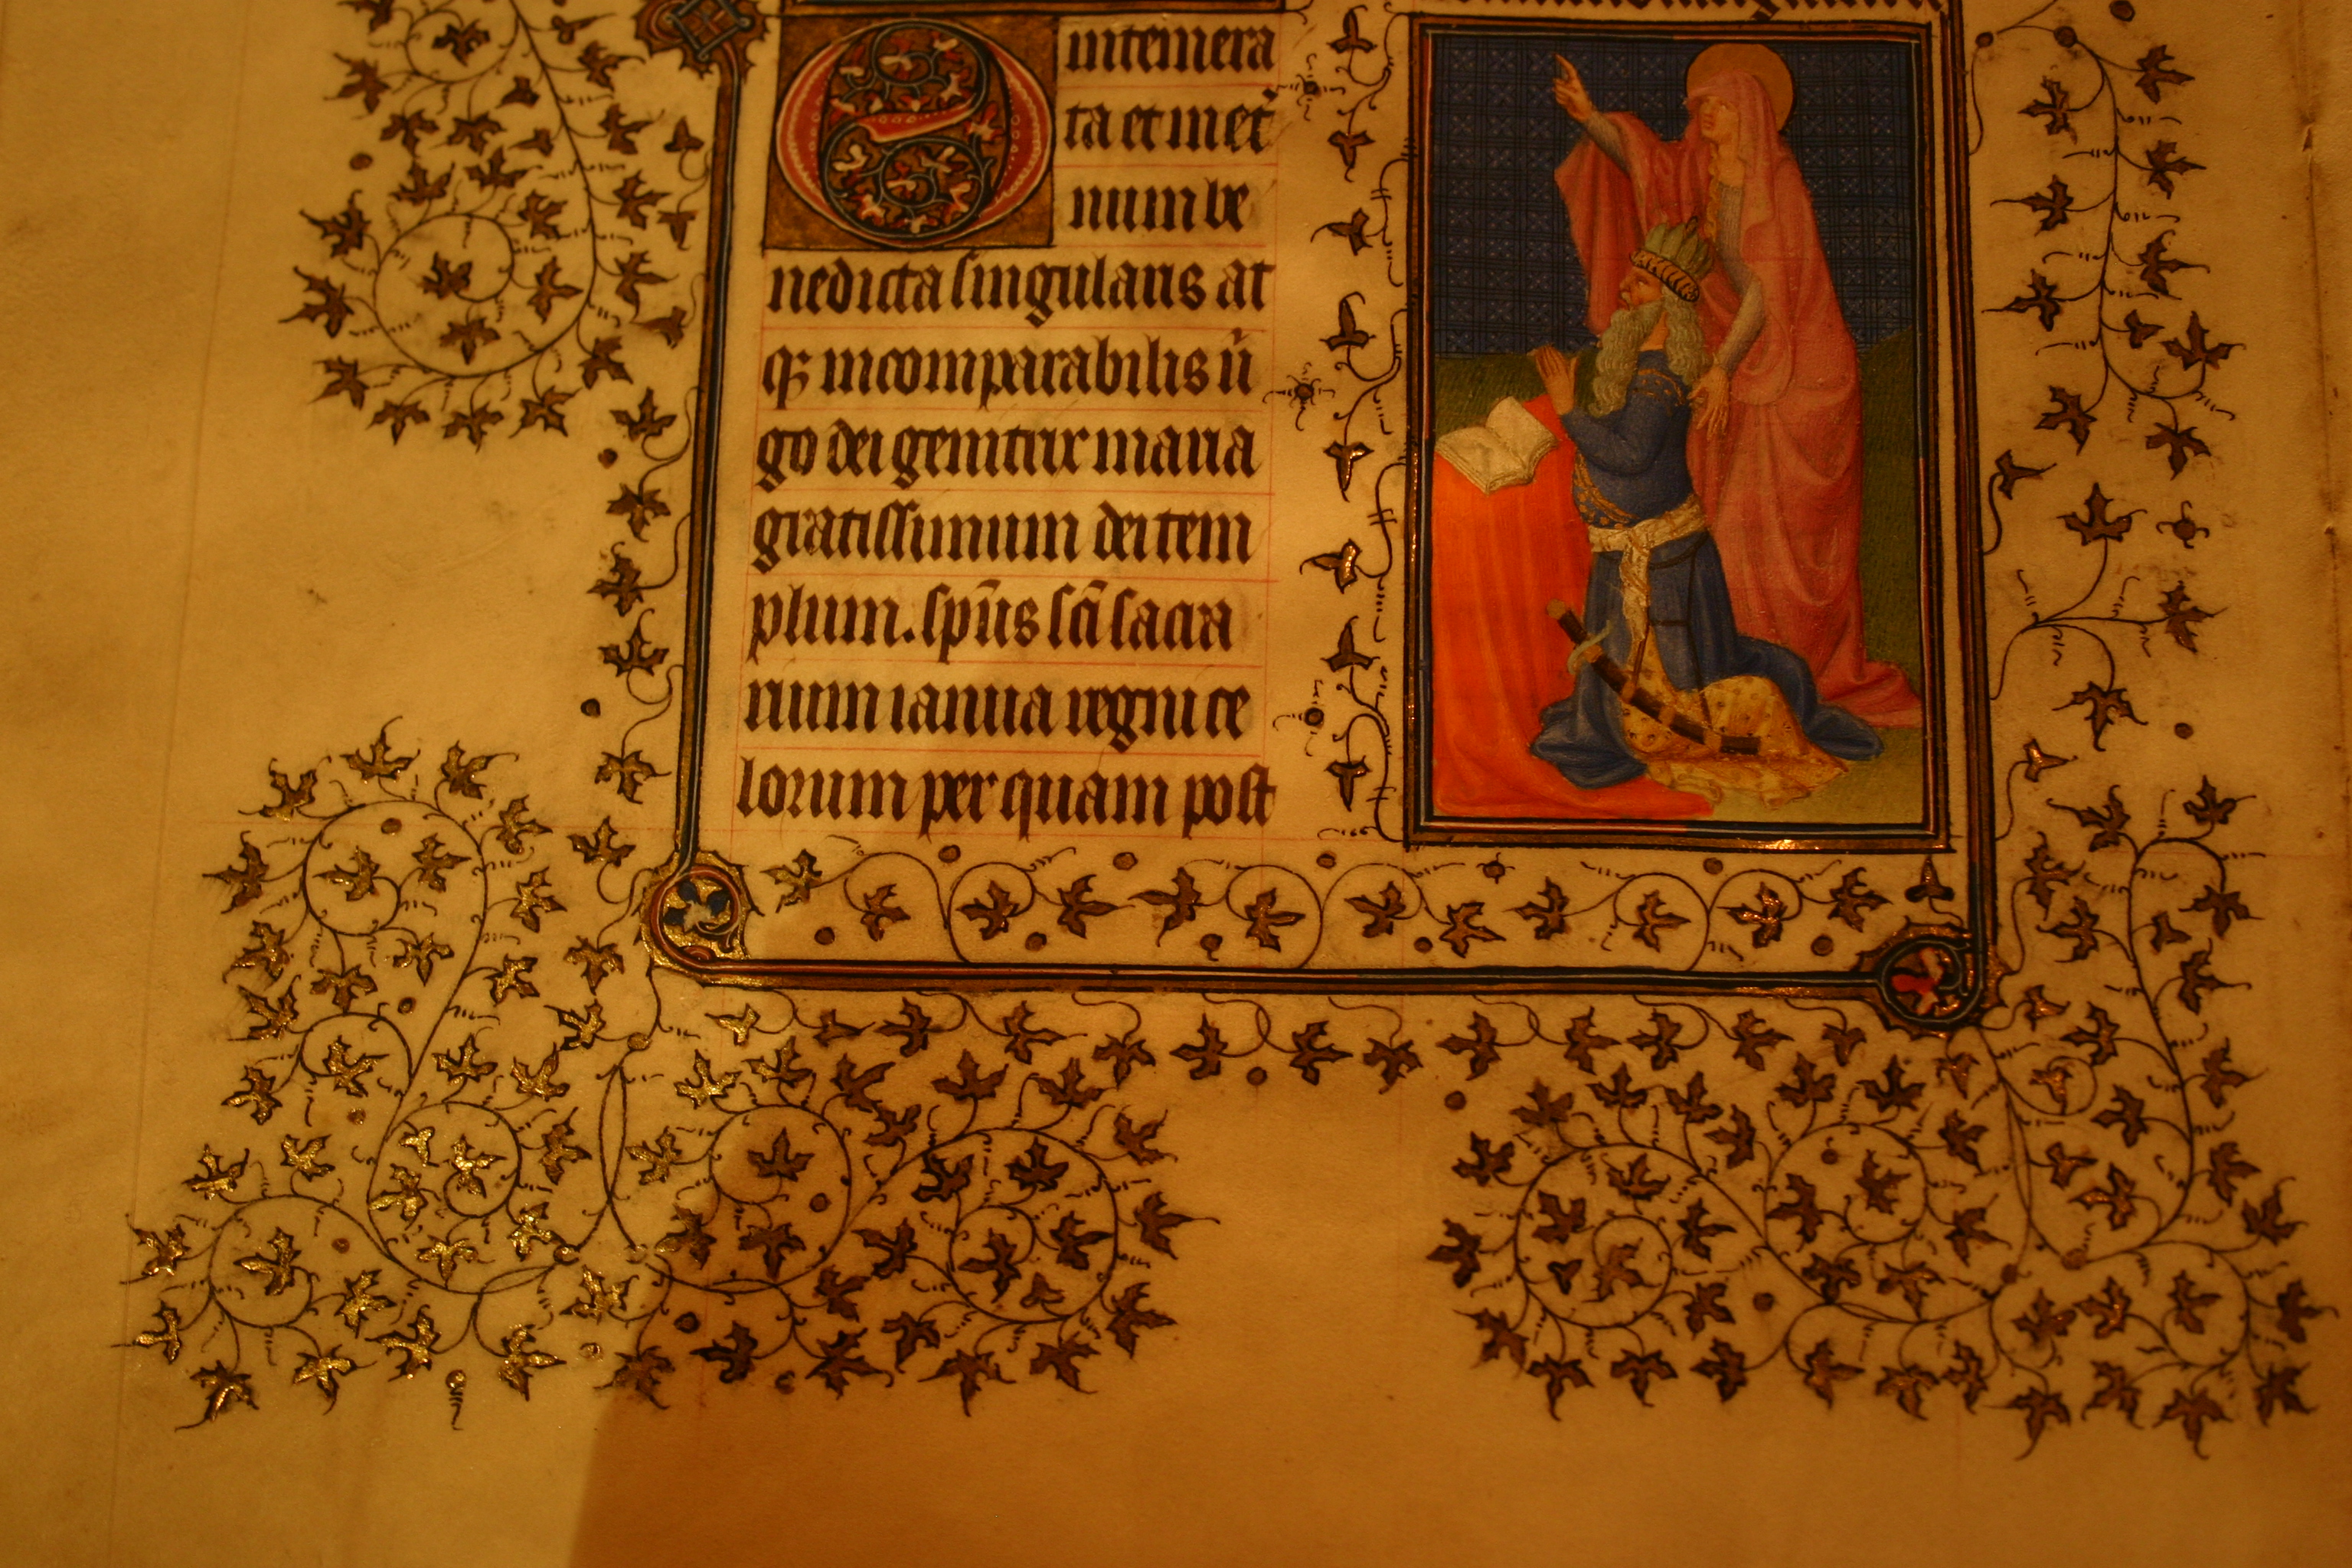 O intemera
ta et in et̄
num be
nedicta singularis at
qꝫ incomparabilis ũ
go dei genitrix maria
gratissimum dei tem
plum. spũs sc̃i sacra
rium ianua regni ce
lorum per quam post